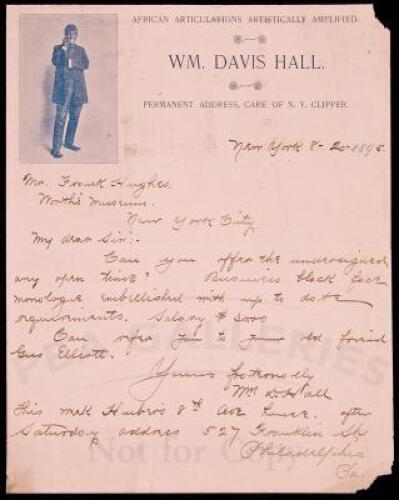 AFRICAN ARTICULATIONS ARTISTICALLY AMPLIFIED.
WM. DAVIS HALL.
PERMANENT ADDRESS, CARE OF N. Y. CLIPPER.
New York 8-20-1895.
Mr. Frank Hughes,
Worth's Museum.
New York City
My dear Sir:-
Can you offer the undersigned
any open time? Business black face
monologue embellished with up to date
requirements. Salary $
Can refer you to your old friend
Gus Elliott.
Yours fraternally
Wm D. Hall
this week Huber's 8th Ave. after
Saturday address 527 Franklin St
Philadelphia
Pa.
GALLERIES
Not for